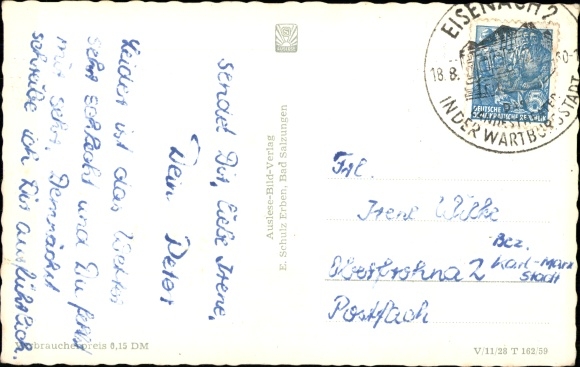 Leider ist das Wetter
sehr schlecht und Du fehlst
mir sehr. Demnächst
schreibe ich Dir ausführlich.
sendet Dir, liebe Irene,
Dein Peter
Auslese-Bild-Verlag
E. Schulz Erben, Bad Salzungen
EISENACH 2
18.8.
IN DER WARTBURGSTADT
DEUTSCHE
DEMOKRATISCHE REPUBLIK
5
Frl.
Irene Wilke
Oberfrohna 2
Bez.
Karl-Marx
Stadt
Postfach
Verbraucherpreis 0,15 DM
V/11/28 T 162/59